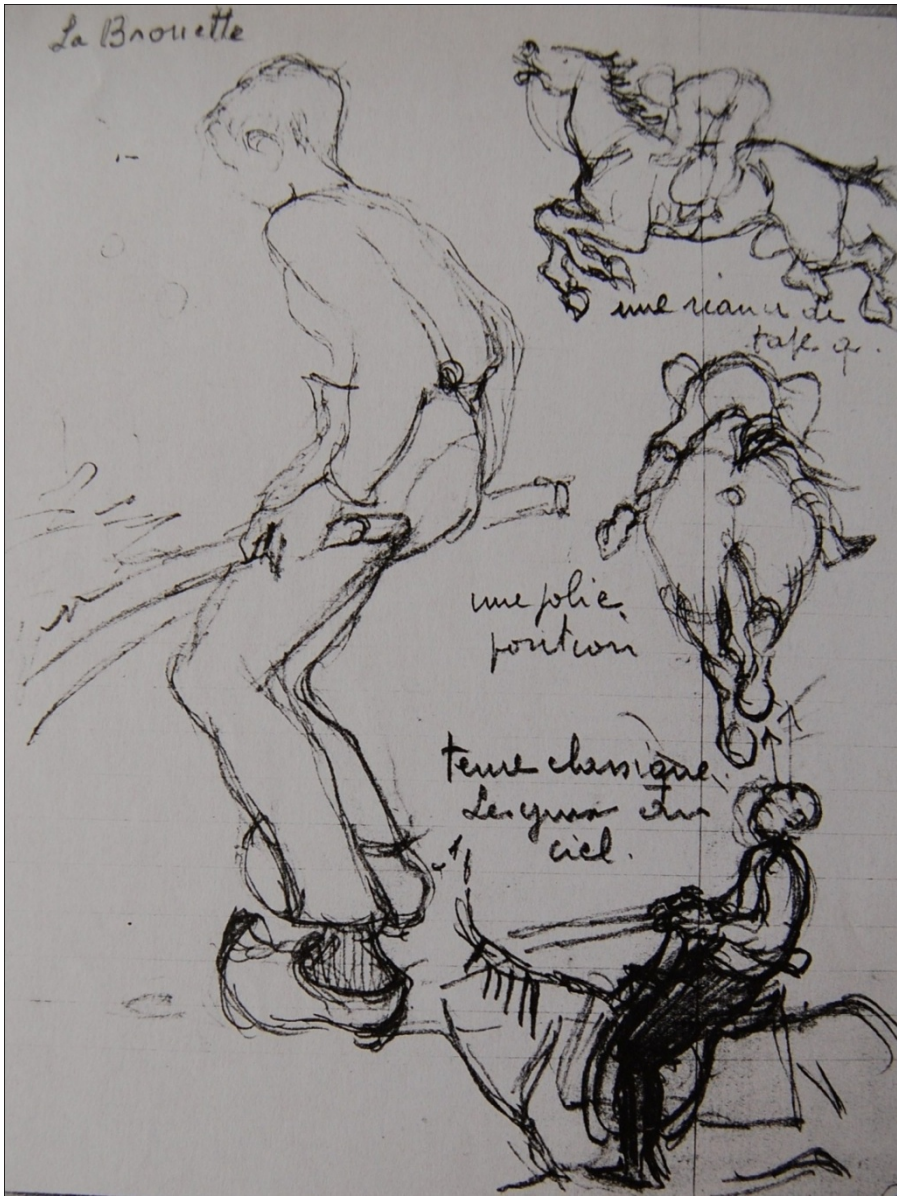 La Brouette
une séance de
une jolie
position
tenue classique.
Les yeux au
ciel.